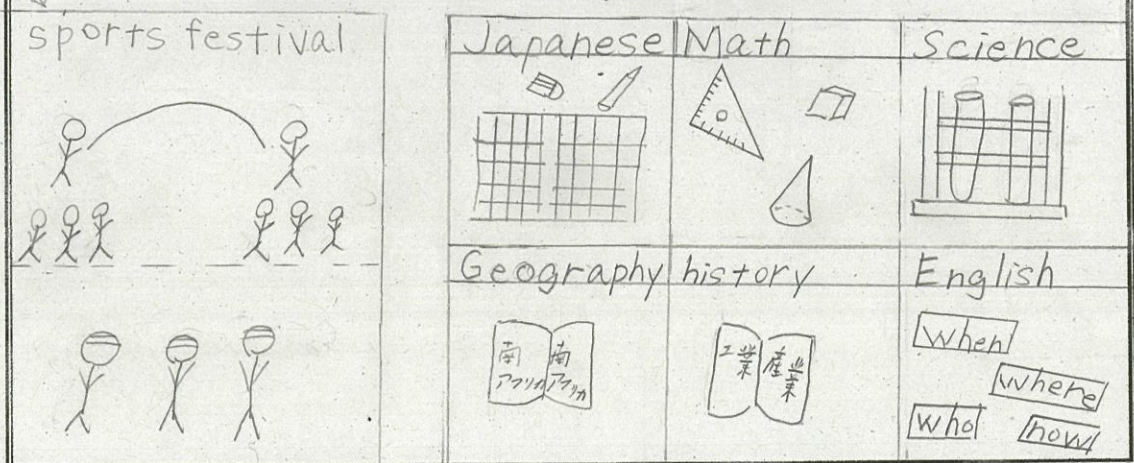 sports festival
Japanese
Math
Science
Geography
history
English
南
アフリカ
南
アフリカ
工業
産業
when
where
who
how